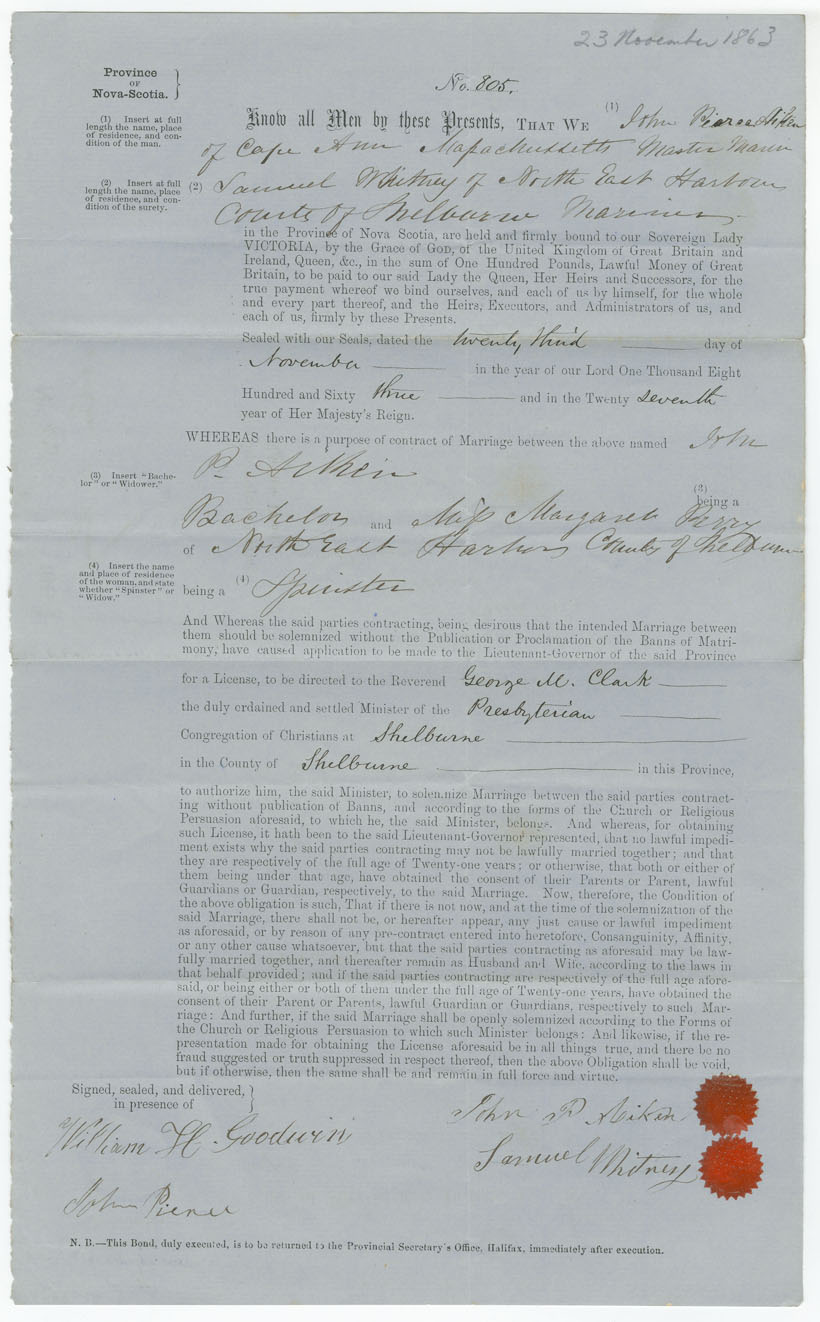 23 November 1863
Province
OF
Nova-Scotia.
No. 805.
(1) Insert at full
length the name, place
of residence, and con-
dition of the man.
Know all Men by these Presents, THAT WE (1) John Pierce Aiken
of Cape Ann Massachussetts Master Marin
(2) Insert at full
length the name, place
of residence, and con-
dition of the surety.
(2) Samuel Whitney of North East Harbour
County of Shelburne Mariner
in the Province of Nova Scotia, are held and firmly bound to our Sovereign Lady
VICTORIA, by the Grace of GOD, of the United Kingdom of Great Britain and
Ireland, Queen, &c., in the sum of One Hundred Pounds, Lawful Money of Great
Britain, to be paid to our said Lady the Queen, Her Heirs and Successors, for the
true payment whereof we bind ourselves, and each of us by himself, for the whole
and every part thereof, and the Heirs, Executors, and Administrators of us, and
each of us, firmly by these Presents.
Sealed with our Seals, dated the twenty third day of
November in the year of our Lord One Thousand Eight
Hundred and Sixty three and in the Twenty seventh
year of Her Majesty's Reign.
WHEREAS there is a purpose of contract of Marriage between the above named John
P. Aiken
(3) Insert "Bache-
lor" or "Widower."
(3)
being a
Bachelor and Miss Margaret Perry
of North East Harbour County of Shelburne
(4) Insert the name
and place of residence
of the woman, and state
whether "Spinster" or
"Widow."
being a (4) Spinster
And Whereas the said parties contracting, being desirous that the intended Marriage between
them should be solemnized without the Publication or Proclamation of the Banns of Matri-
mony, have caused application to be made to the Lieutenant-Governor of the said Province
for a License, to be directed to the Reverend George M. Clark
the duly ordained and settled Minister of the Presbyterian
Congregation of Christians at Shelburne
in the County of Shelburne in this Province,
to authorize him, the said Minister, to solemnize Marriage between the said parties contract-
ing without publication of Banns, and according to the forms of the Church or Religious
Persuasion aforesaid, to which he, the said Minister, belongs. And whereas, for obtaining
such License, it hath been to the said Lieutenant-Governor represented, that no lawful impedi-
ment exists why the said parties contracting may not be lawfully married together; and that
they are respectively of the full age of Twenty-one years; or otherwise, that both or either of
them being under that age, have obtained the consent of their Parents or Parent, lawful
Guardians or Guardian, respectively, to the said Marriage. Now, therefore, the Condition of
the above obligation is such, That if there is not now, and at the time of the solemnization of the
said Marriage, there shall not be, or hereafter appear, any just cause or lawful impediment
as aforesaid, or by reason of any pre-contract entered into heretofore, Consanguinity, Affinity,
or any other cause whatsoever, but that the said parties contracting as aforesaid may be law-
fully married together, and thereafter remain as Husband and Wife, according to the laws in
that behalf provided; and if the said parties contracting are respectively of the full age afore-
said, or being either or both of them under the full age of Twenty-one years, have obtained the
consent of their Parent or Parents, lawful Guardian or Guardians, respectively to such Mar-
riage: And further, if the said Marriage shall be openly solemnized according to the Forms of
the Church or Religious Persuasion to which such Minister belongs: And likewise, if the re-
presentation made for obtaining the License aforesaid be in all things true, and there be no
fraud suggested or truth suppressed in respect thereof, then the above Obligation shall be void,
but if otherwise, then the same shall be and remain in full force and virtue.
Signed, sealed, and delivered,
in presence of
William H. Goodwin
John P. Aikin
Samuel Whitney
John Pierce
N. B.—This Bond, duly executed, is to be returned to the Provincial Secretary's Office, Halifax, immediately after execution.